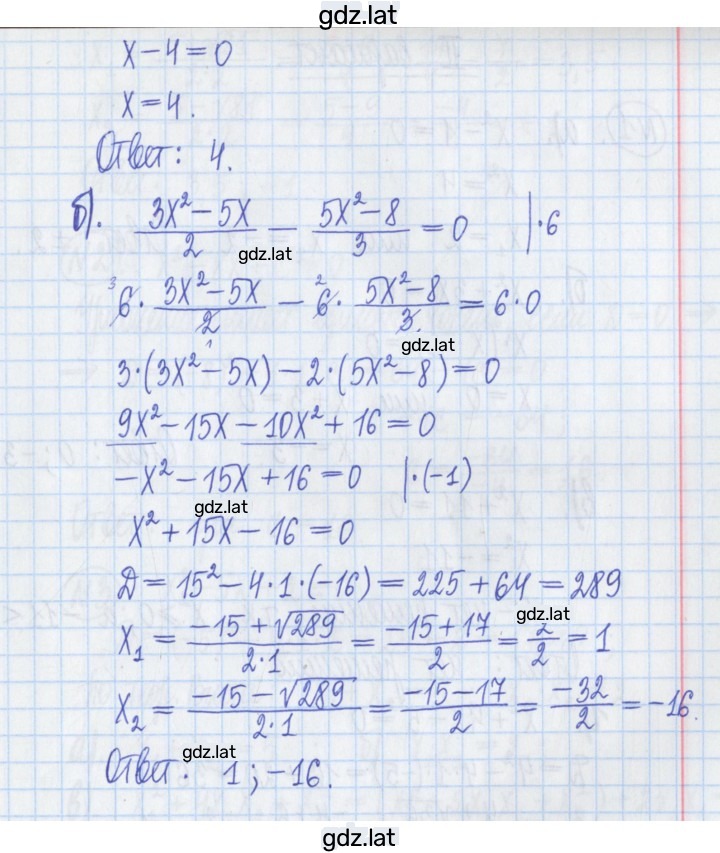 gdz.lat
x - 4 = 0
x = 4.
Ответ: 4.
б). (3x² - 5x)/2 - (5x² - 8)/3 = 0 |·6
gdz.lat
³6 · (3x² - 5x)/2₁ - ²6 · (5x² - 8)/3. = 6·0
gdz.lat
3·(3x² - 5x) - 2·(5x² - 8) = 0
9x² - 15x - 10x² + 16 = 0
-x² - 15x + 16 = 0 |·(-1)
gdz.lat
x² + 15x - 16 = 0
Д = 15² - 4·1·(-16) = 225 + 64 = 289
gdz.lat
x₁ = (-15 + √289)/(2·1) = (-15 + 17)/2 = 2/2 = 1
x₂ = (-15 - √289)/(2·1) = (-15 - 17)/2 = (-32)/2 = -16.
gdz.lat
Ответ: 1; -16.
gdz.lat